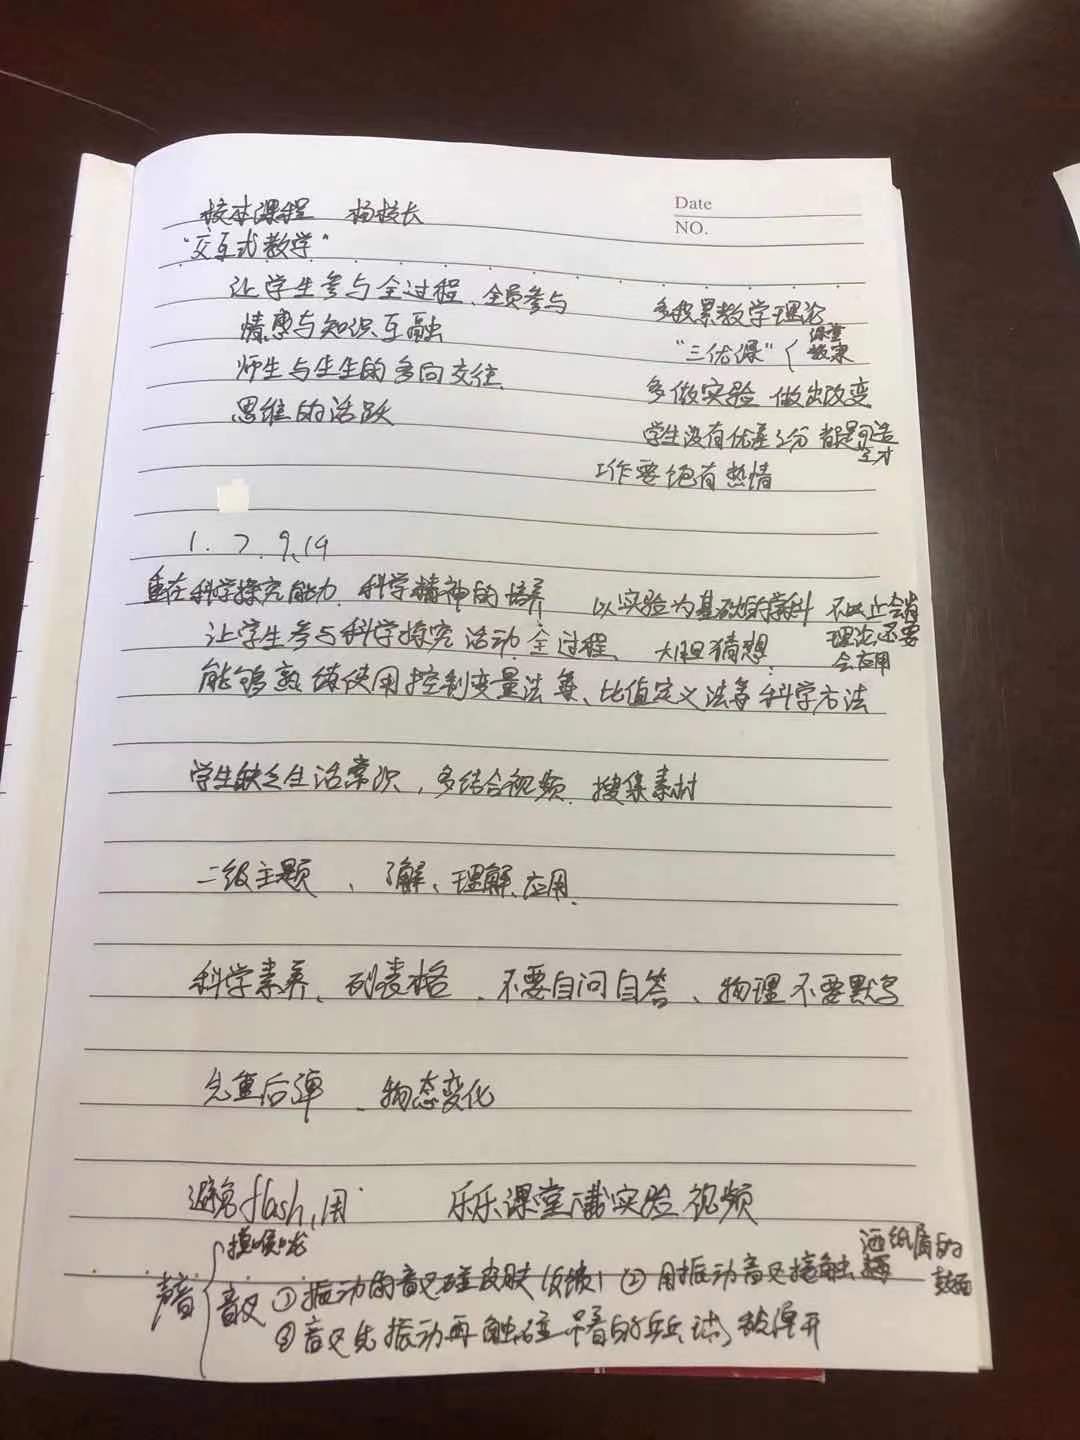 校本课程 杨校长
Date
NO.
"交互式教学"
让学生参与全过程、全员参与
多积累教学理论
情感与知识互融
"三优课" { 课堂
教案
师生与生生的多向交往
多做实验 做出改变
思维的活跃
学生没有优差之分 都是可造
之才
工作要饱有热情
1. 7. 9、19
重在科学探究能力、科学精神的培养 以实验为基础的学科 不仅止会背
理论,还要
会应用
让学生参与科学探究活动全过程、大胆猜想.
能够熟练使用控制变量法等、比值定义法等科学方法
学生缺乏生活常识,多结合视频、搜集素材
二级主题、了解、理解、应用.
科学素养、列表格、不要自问自答、物理不要默写
先重后弹、物态变化
避免flash、用 乐乐课堂 实验视频
声音 { 摸喉咙
音叉 ①振动的音叉碰皮肤 ②用振动音叉接触 洒纸屑的
鼓面
③音叉先振动再触碰吊着的乒乓球 被弹开